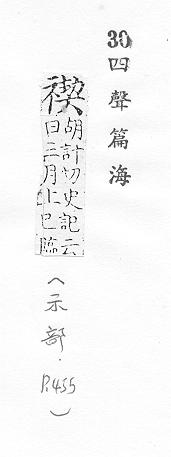 30四聲篇海
禊
胡計切史記云
日三月上巳臨
（示部．P.455）